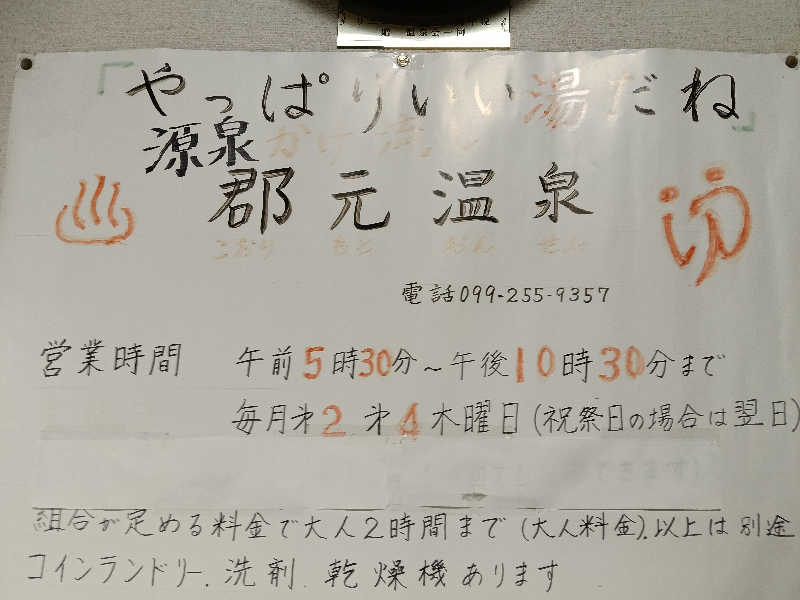 「やっぱりいい湯だね」
源泉かけ流し
郡元温泉
こおり もと おん せん
電話099-255-9357
営業時間 午前5時30分～午後10時30分まで
毎月㐧2.㐧4木曜日(祝祭日の場合は翌日)
組合が定める料金で大人2時間まで(大人料金).以上は別途
コインランドリー.洗剤.乾燥機あります